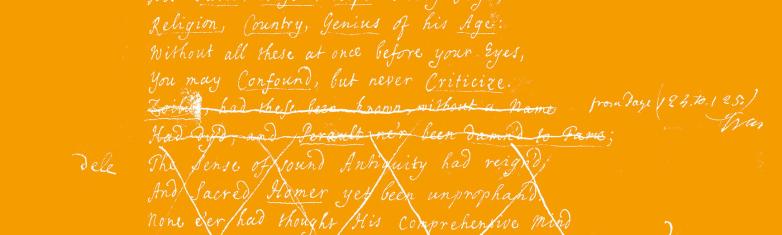 Religion, Country, Genius of his Age:
Without all these at once before your Eyes,
You may Confound, but never Criticize.
Zoilus, had these been known, without a Name
Had dy'd, and Perault ne'er been damn'd to Fame;
dele
The Sense of sound Antiquity had reign'd,
And Sacred Homer yet been unprophan'd
None e'er had thought His Comprehensive Mind